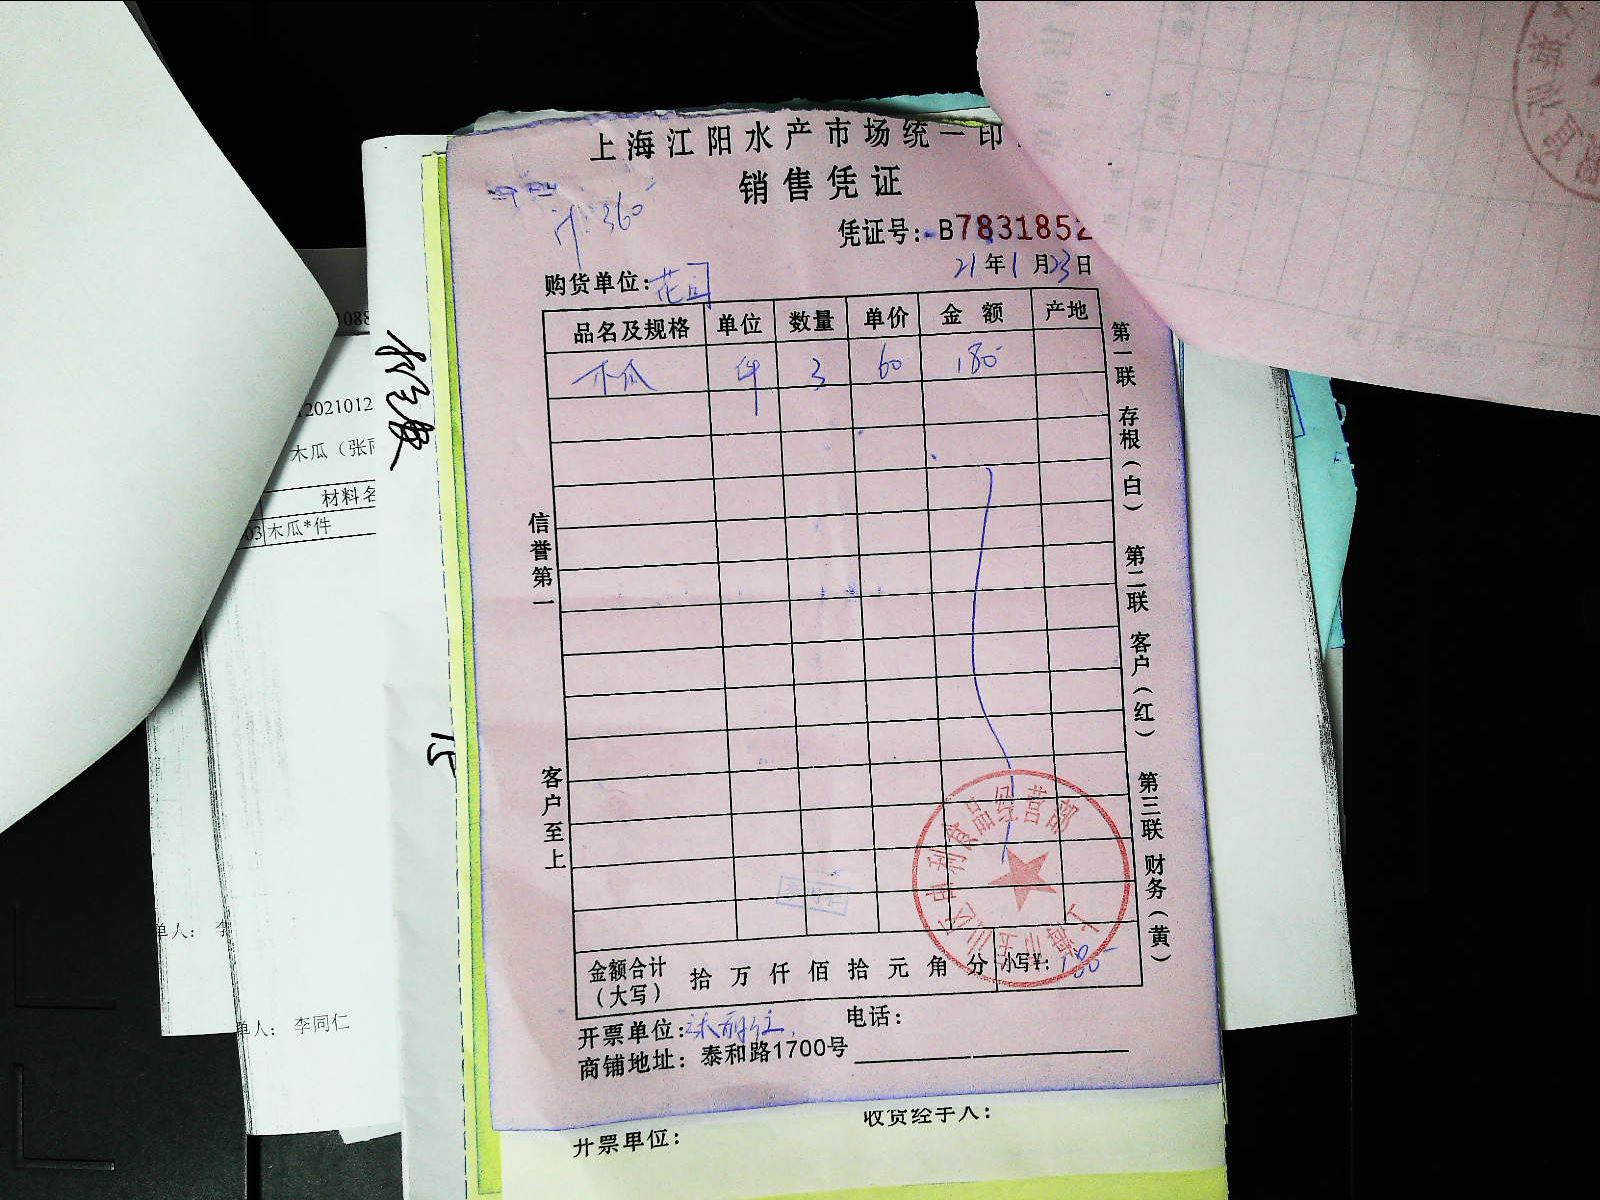 上海江阳水产市场统一印
销售凭证
计:360
凭证号: B7831852
21年1月23日
购货单位:花
品名及规格 单位 数量 单价 金额 产地
木瓜 件 3 60 180
第一联 存根（白） 第二联 客户（红） 第三联 财务（黄）
信誉第一
客户至上
食品经营部
金额合计（大写） 拾 万 仟 佰 拾 元 角 分 小写¥: 180
开票单位:
电话:
商铺地址: 泰和路1700号
收货经手人:
开票单位:
1088
12021012
木瓜（张
材料名
03 木瓜*件
15
单人: 李
单人: 李同仁